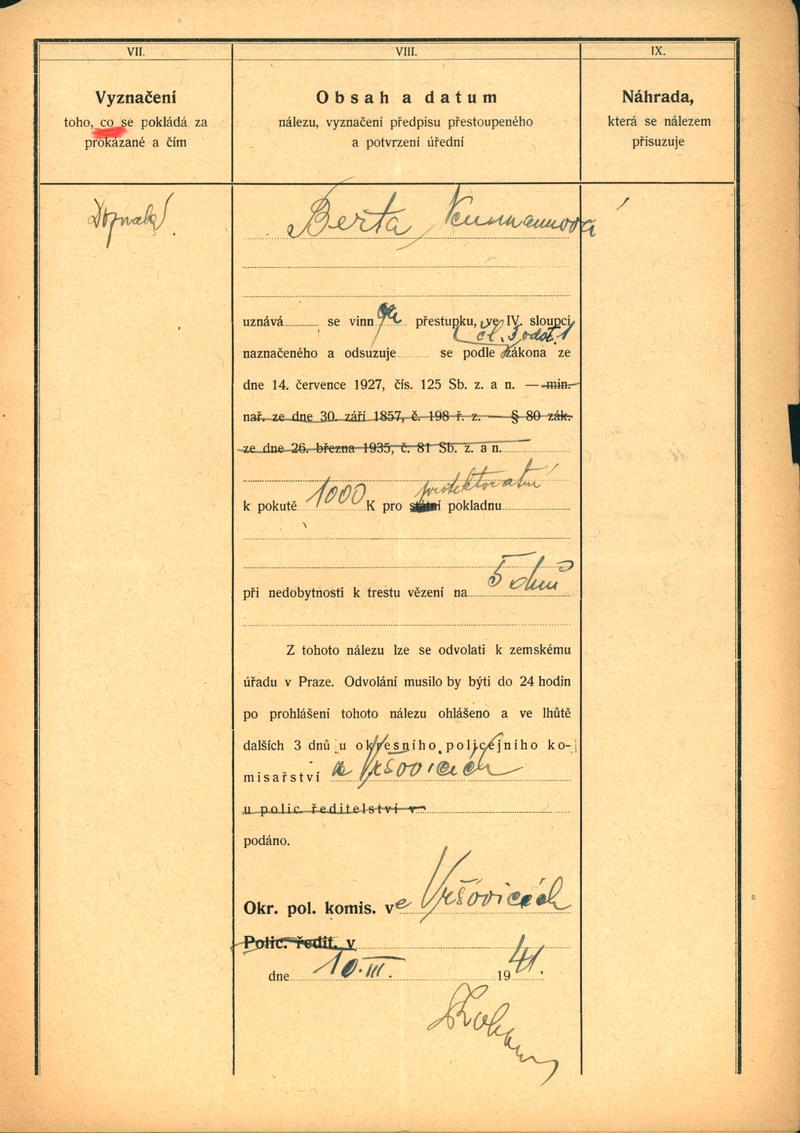 VII.
Vyznačení
toho, co se pokládá za
prokázané a čím
Doznala
VIII.
Obsah a datum
nálezu, vyznačení předpisu přestoupeného
a potvrzení úřední
Berta Neumannová
uznává se vinna přestupku, ve IV. sloupci
čl. 3 odst. 1
naznačeného a odsuzuje se podle zákona ze
dne 14. července 1927, čís. 125 Sb. z. a n. — min.
nař. ze dne 30. září 1857, č. 198 ř. z. — § 80 zák.
ze dne 26. března 1935, č. 81 Sb. z. a n.
protektorátní
k pokutě 1000 K pro státní pokladnu
při nedobytnosti k trestu vězení na 5 dnů
Z tohoto nálezu lze se odvolati k zemskému
úřadu v Praze. Odvolání musilo by býti do 24 hodin
po prohlášení tohoto nálezu ohlášeno a ve lhůtě
dalších 3 dnů u okresního policejního ko-
misařství ve Vršovicích
u polic. ředitelství v
podáno.
Okr. pol. komis. ve Vršovicích
Polic. ředit. v
dne 10. III. 1941.
IX.
Náhrada,
která se nálezem
přisuzuje